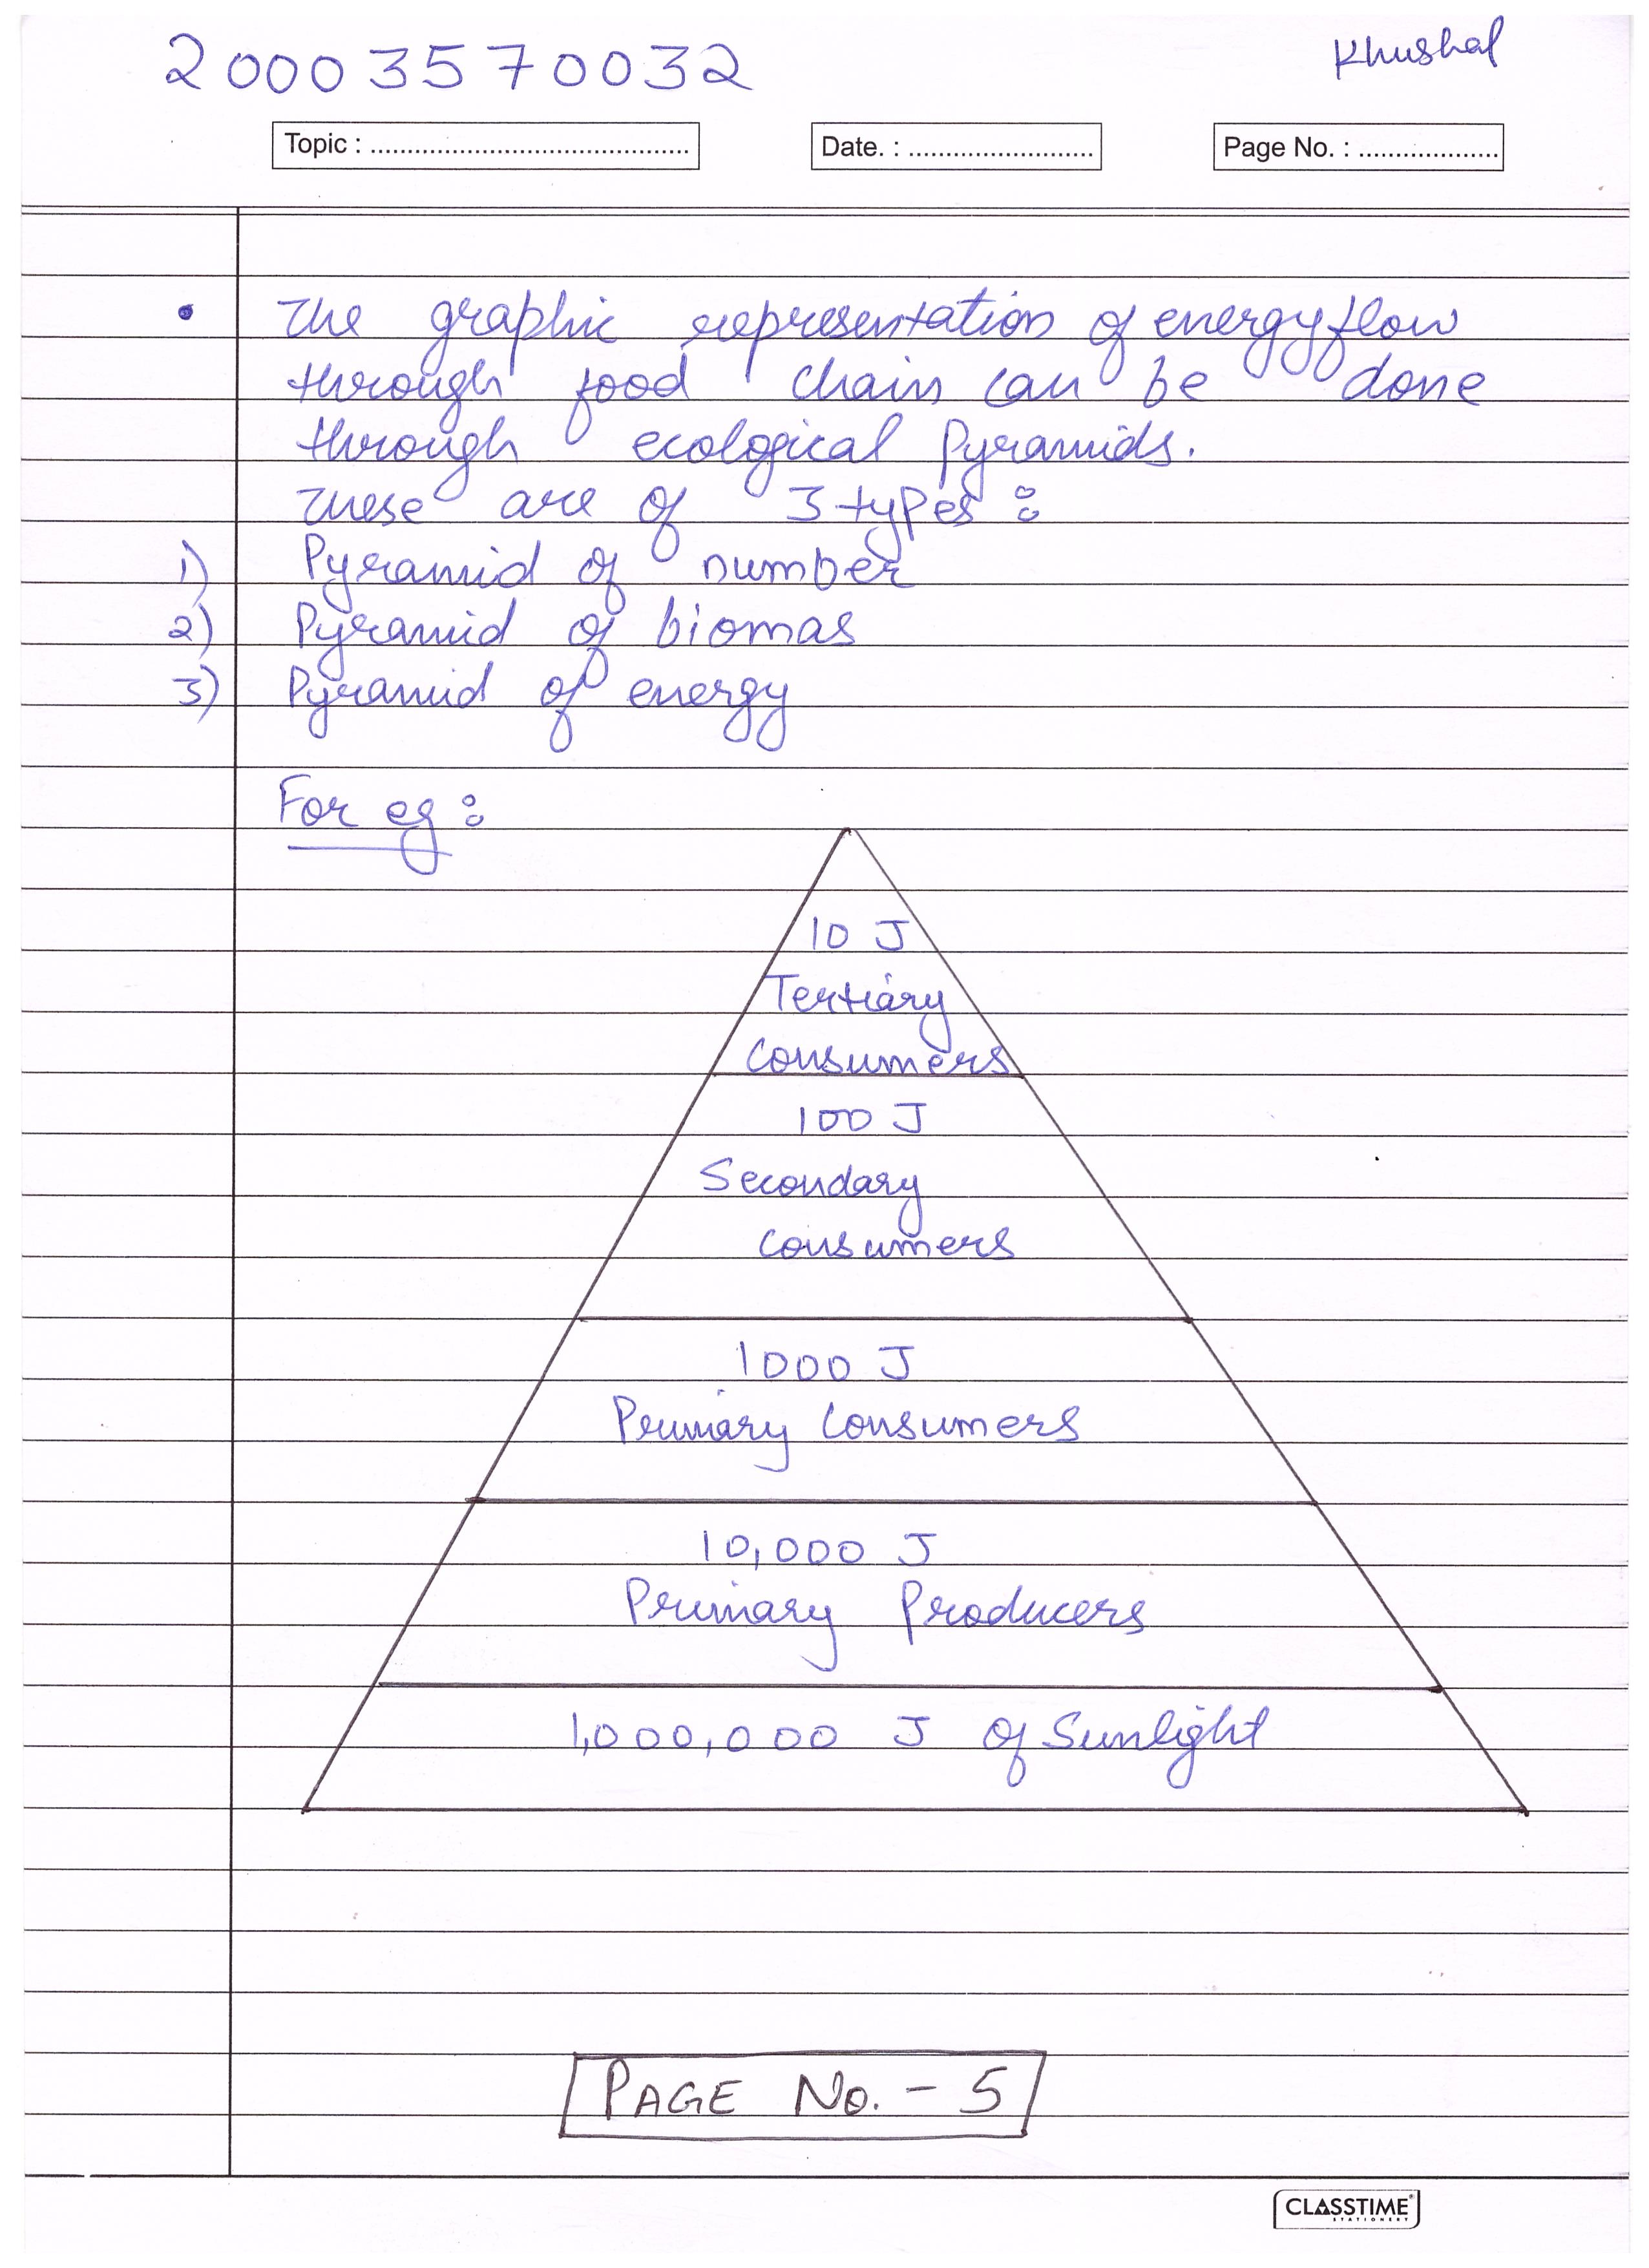 20003570032
Khushal
Topic : ............................................
Date. : .........................
Page No. : ...................
• The graphic representation of energy flow
through food chain can be done
through ecological Pyramids.
These are of 3 types :
1) Pyramid of number
2) Pyramid of biomas
3) Pyramid of energy
For eg :
10 J
Tertiary
Consumers
100 J
Secondary
Consumers
1000 J
Primary Consumers
10,000 J
Primary Producers
1,000,000 J of Sunlight
PAGE No. - 5
CLASSTIME
STATIONERY